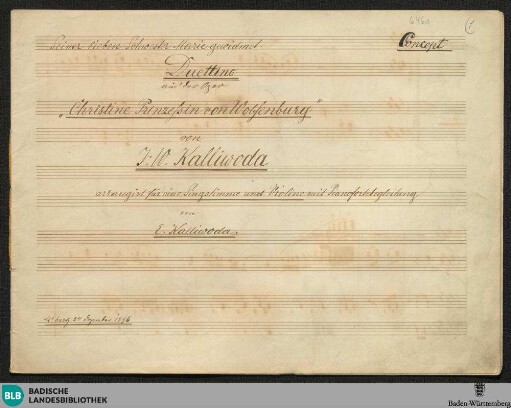 Seiner lieben Schwester Marie gewidmet.
Concept
Duettino
aus der Oper
„Christine Prinzessin von Wolfenburg"
von
J. W. Kalliwoda
arrangirt für eine Singstimme und Violine mit Pianofortebegleitung
von
E. Kalliwoda.
24 Dezember 1896
BLB
BADISCHE
LANDESBIBLIOTHEK
Baden-Württemberg